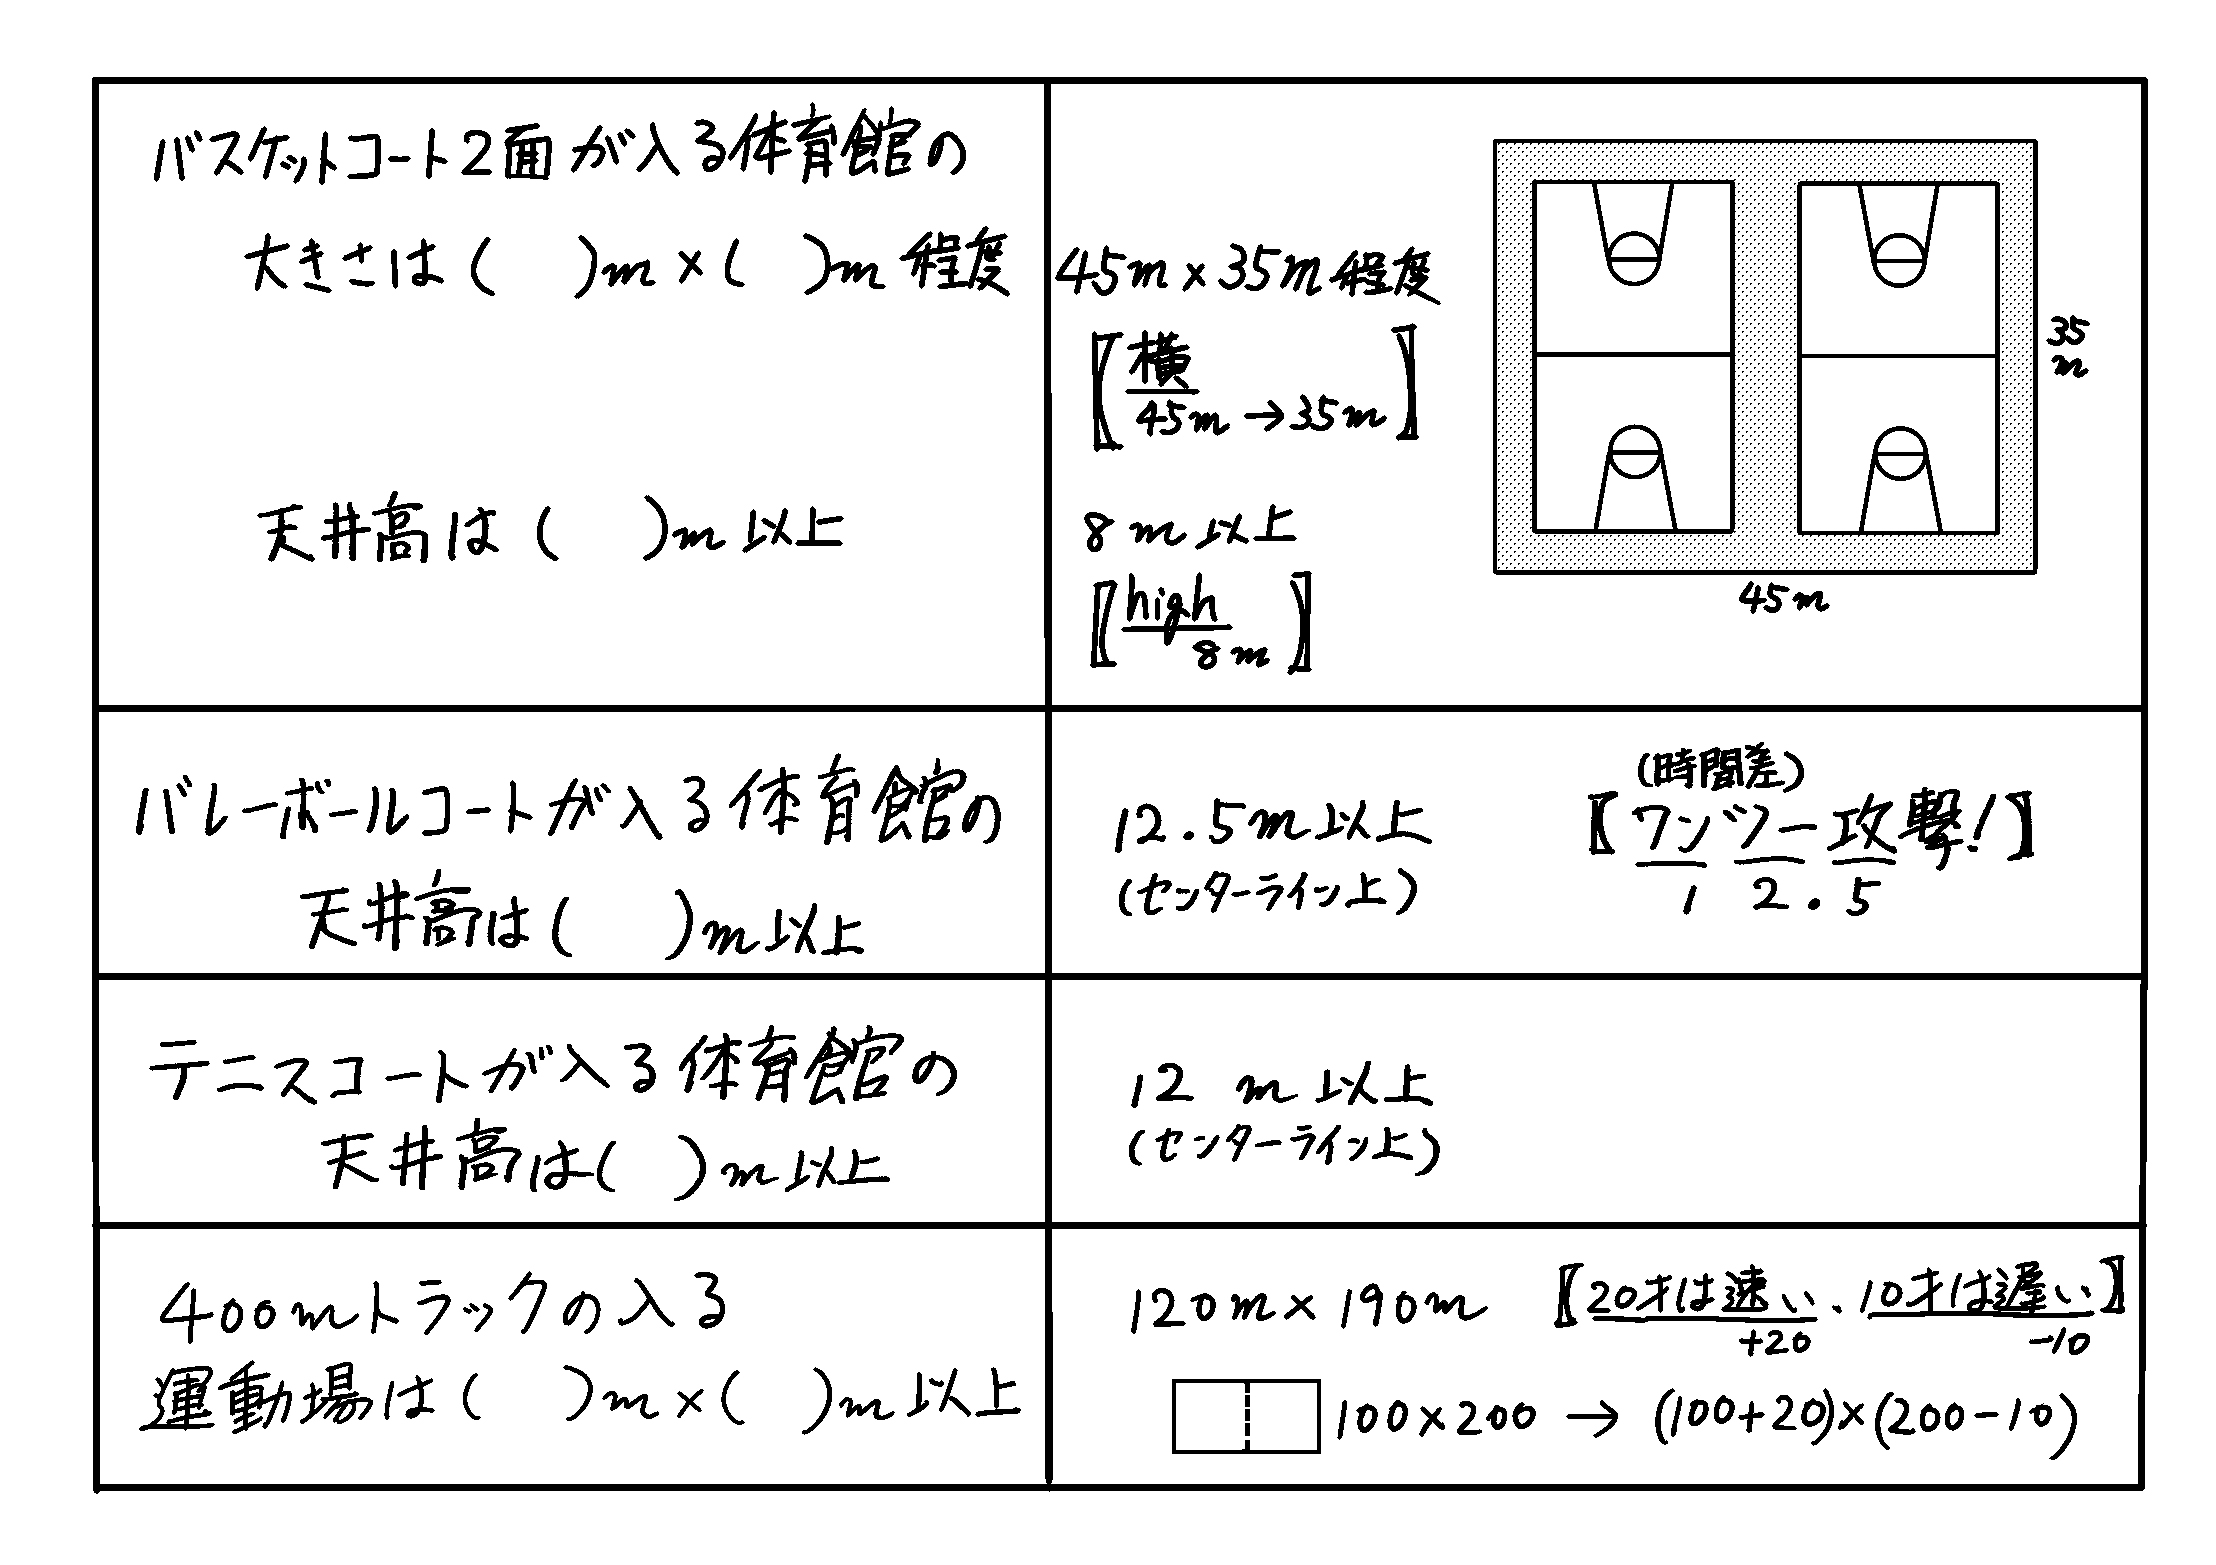 バスケットコート2面が入る体育館の
大きさは(　)m×(　)m程度
天井高は(　)m以上
45m×35m程度
〖横
45m→35m〗
8m以上
〖high
8m〗
35
m
45m
バレーボールコートが入る体育館の
天井高は(　)m以上
12.5m以上
(センターライン上)
(時間差)
〖ワンツー攻撃!〗
1 2.5
テニスコートが入る体育館の
天井高は(　)m以上
12 m以上
(センターライン上)
400mトラックの入る
運動場は(　)m×(　)m以上
120m×190m
〖20才は速い、10才は遅い〗
+20 -10
100×200 → (100+20)×(200-10)